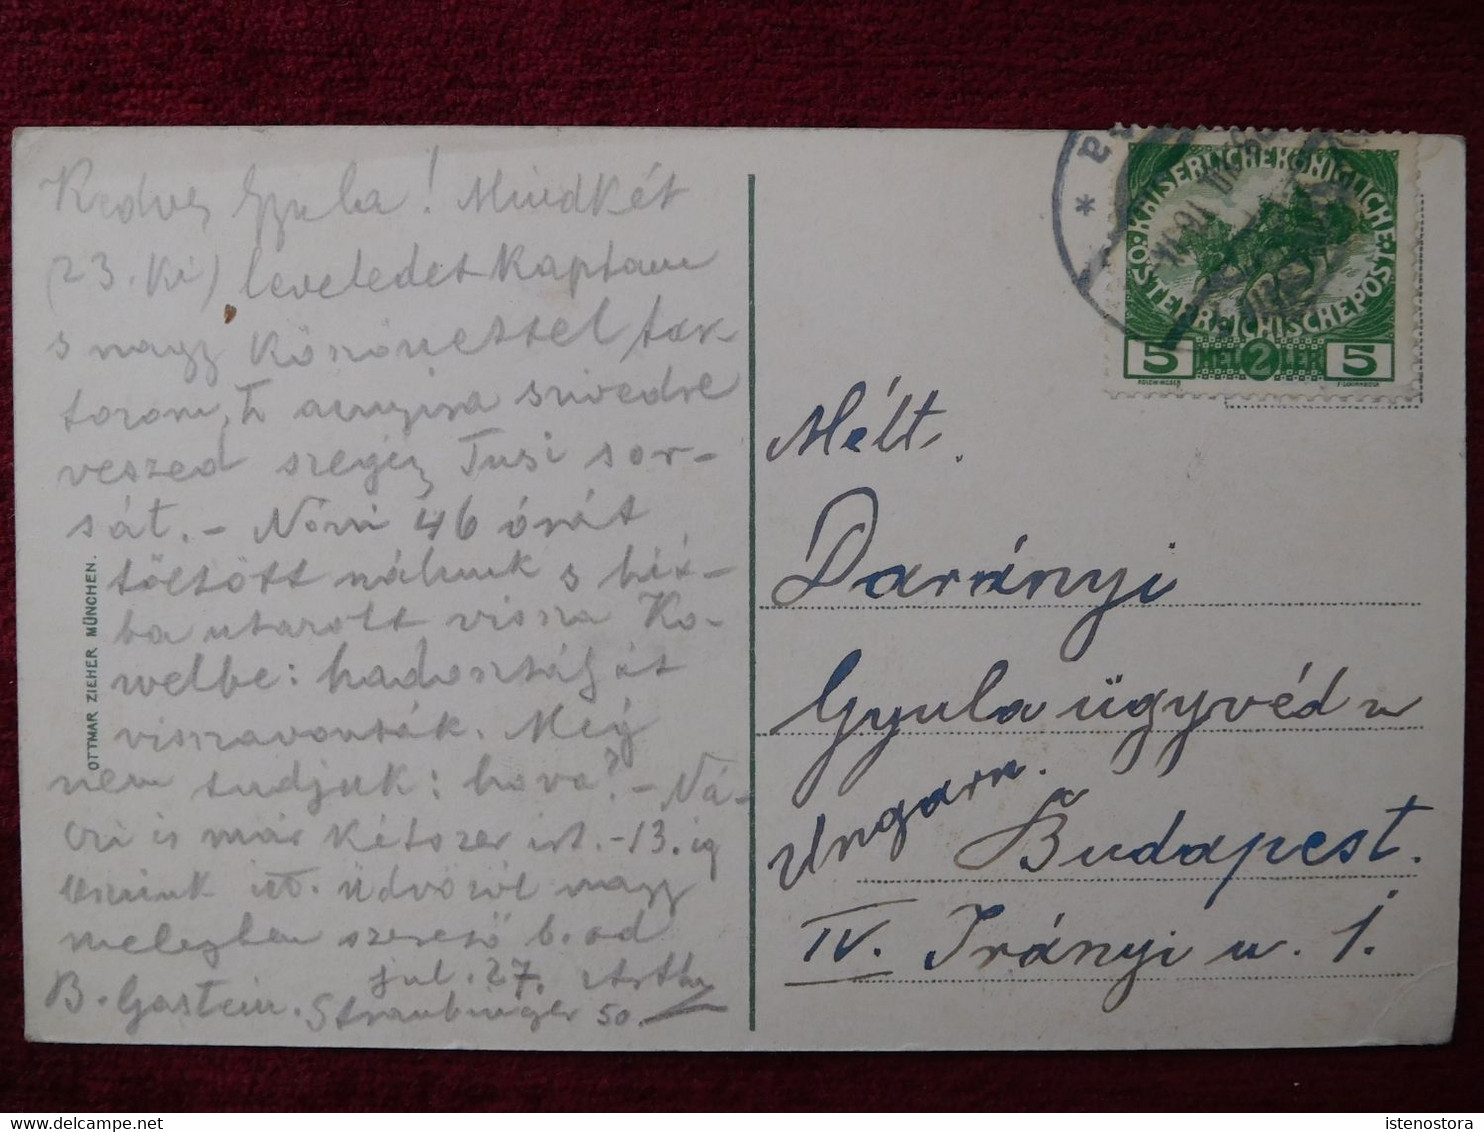 Kedves Gyula! Mindkét
(23.-ki) leveledet kaptam
s nagy köszönettel tar-
tozom, h. annyira szivedre
veszed szegény Tusi sor-
sát. – Nóvi 46 órát
töltött nálunk s hiá-
ba utazott vissza Ko-
welbe: hadosztályát
visszavonták. Még
nem tudjuk: hova? – Ná-
czi is már kétszer irt. – 13.ig
itt. Üdvözöl nagy
melegben szerető b.-ad
jul. 27. Arthur
B. Gastein. Straubinger 50.
OTTMAR ZIEHER MÜNCHEN.
KAISERLICHE KÖNIGLICHE
ÖSTERREICHISCHE POST
5 HELLER 5
2
Mélt.
Darányi
Gyula ügyvéd u
Ungarn.
Budapest.
IV. Irányi u. 1.
istenostora